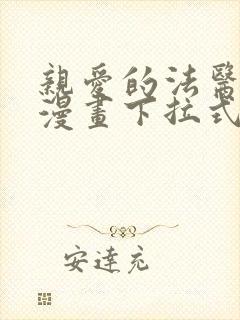 親愛的法醫
漫畫下拉式
安達充